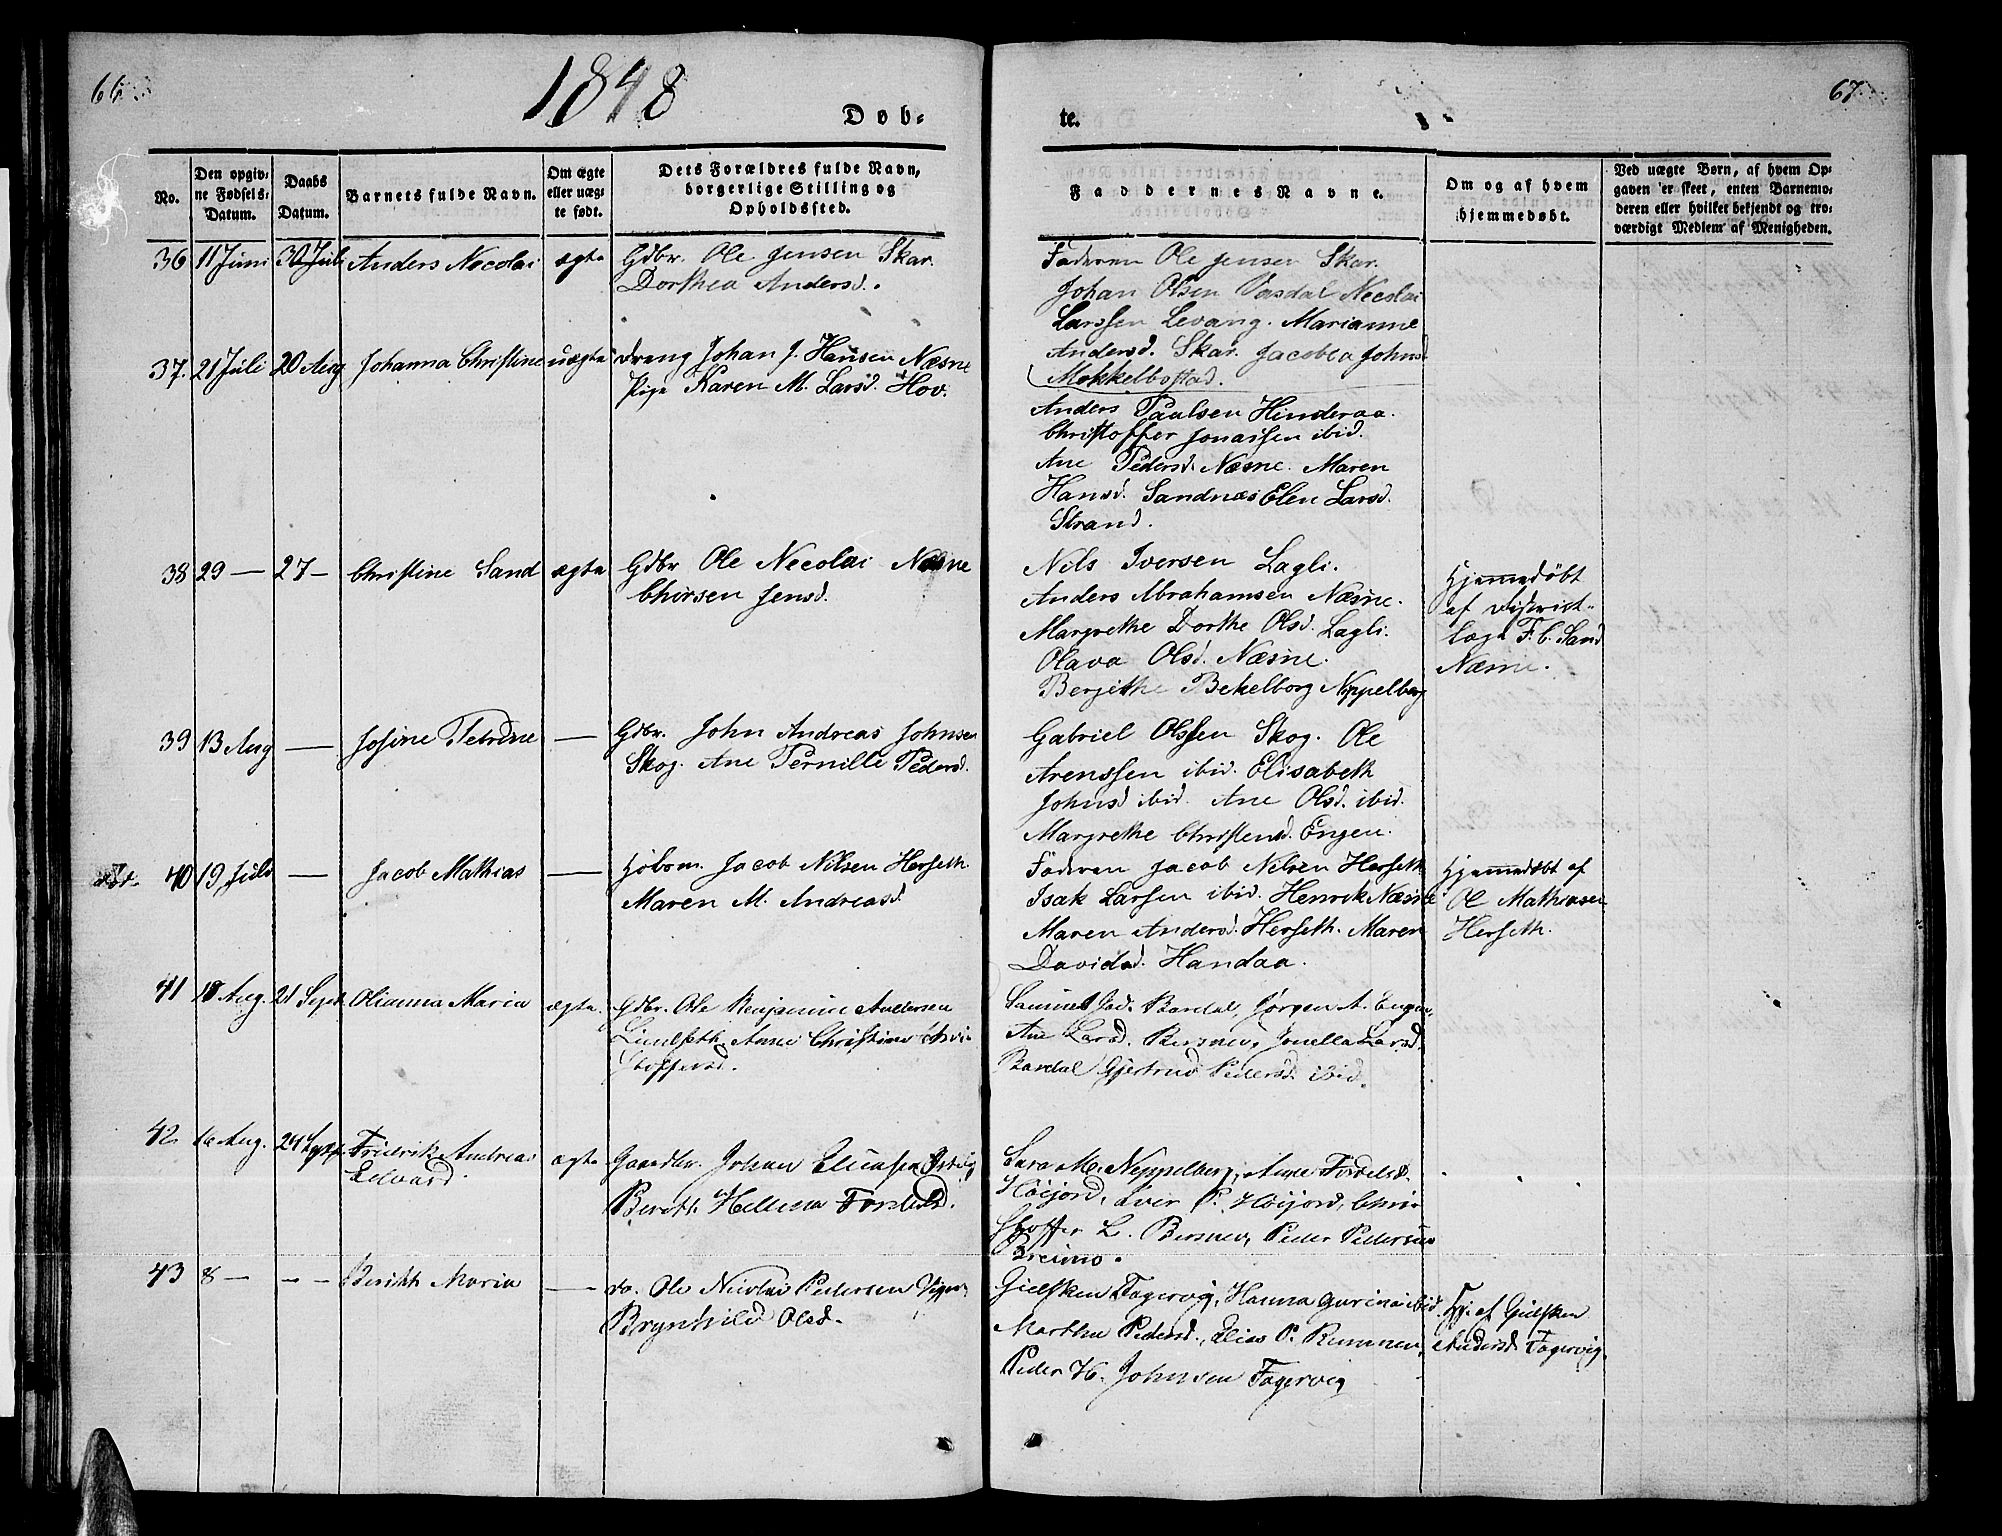 66
1848
Døb-
No.
Den opgiv-
ne Fødsels-
Datum.
Daabs
Datum.
Barnets fulde Navn.
Om ægte
eller uæg-
te født.
Dets Forældres fulde Navn,
borgerlige Stilling og
Opholdssted.
36 11 Juni 30 Juli Anders Nicolai ægte Gdbr. Ole Jensen Skar.
Dorthea Andersd.
37. 21 Juli 20 Aug Johanna Christine uægte Dreng Johan J. Hansen Næsne
Pige Karen M. Larsd. Hov.
38 29 — 27 — Christine Sand ægte Gdbr Ole Necolai Næsne
Jensd.
39 13 Aug — Josine Petrine — Gdbr. John Andreas Johnsen
Skog. Ane Pernille Pedersd.
40 19 Juli — Jacob Mathias — Jacob Nilsen Herseth.
Maren M. Andreasd.
41 18 Aug. 21 Sept. Olianna Maria ægte. Gdbr. Ole Benjamin Andersen
Lundseth, Anne Christine Chri-
stoffersd.
42. 16 Aug. 24 Septr. Fridrik Andreas ægte Gaardbr. Johan
Edvard. Berith Hellena
43 8 — — — Berith Maria — do. Ole Nicolai Pedersen
Brynhild Olsd.
te.
67
Faddernes Navne.
Om og af hvem
hjemmedøbt.
Ved uægte Børn, af hvem Op-
gaven er skeet, enten Barnemo-
deren eller hvilket bekjendt og tro-
værdigt Medlem af Menigheden.
Faderen Ole Jensen Skar.
Johan Olsen Vasdal Necolai
Larssen Levang. Marianne
Andersd. Skar. Jacobea Johnsd
Mokkelbostad.
Anders Paulsen Hinderaa.
Christoffer Jonassen ibid.
Ane Pedersd. Næsne. Maren
Hansd. Sandnæs Elen Larsd.
Strand.
Nils Iversen Lagli.
Anders Abrahamsen Næsne.
Margrethe Dorthe Olsd. Lagli.
Olava Olsd. Næsne.
Berjithe Bekelborg Neppelberg
Hjemmedøbt
af District-
læge F. C. Sand
Næsne.
Gabriel Olssen Skog. Ole
Arenssen ibid. Elisabeth
Johnsd ibid. Ane Olsd. ibid.
Margrethe Christensd. Engen.
Faderen Jacob Nelsen Herseth
Isak Larsen ibid. Henrik Næsne
Maren Andersd. Herseth. Maren
Davidsd. Handaa.
Hjemmedøbt af
Ol Mathiasen
Herseth.
Samuel Jac. Bardal, Jørgen A. Engen,
Ane Larsd. Busnes, Jonella Larsd.
Bardal Gjertrud Pedersd. ibid.
Lars M. Neppelberg, Anne
Høijord, Iver P. Høijord, Chri-
stoffer L. Busnes, Peder Pedersen
Breimo.
Gielsken Fagervig, Hanna Gurina ibid.
Martha Pedersd., Elias P. Remmen,
Peder H. Johnsen Fagervig
Hj. af Gielsken
Andersd Fagervig.